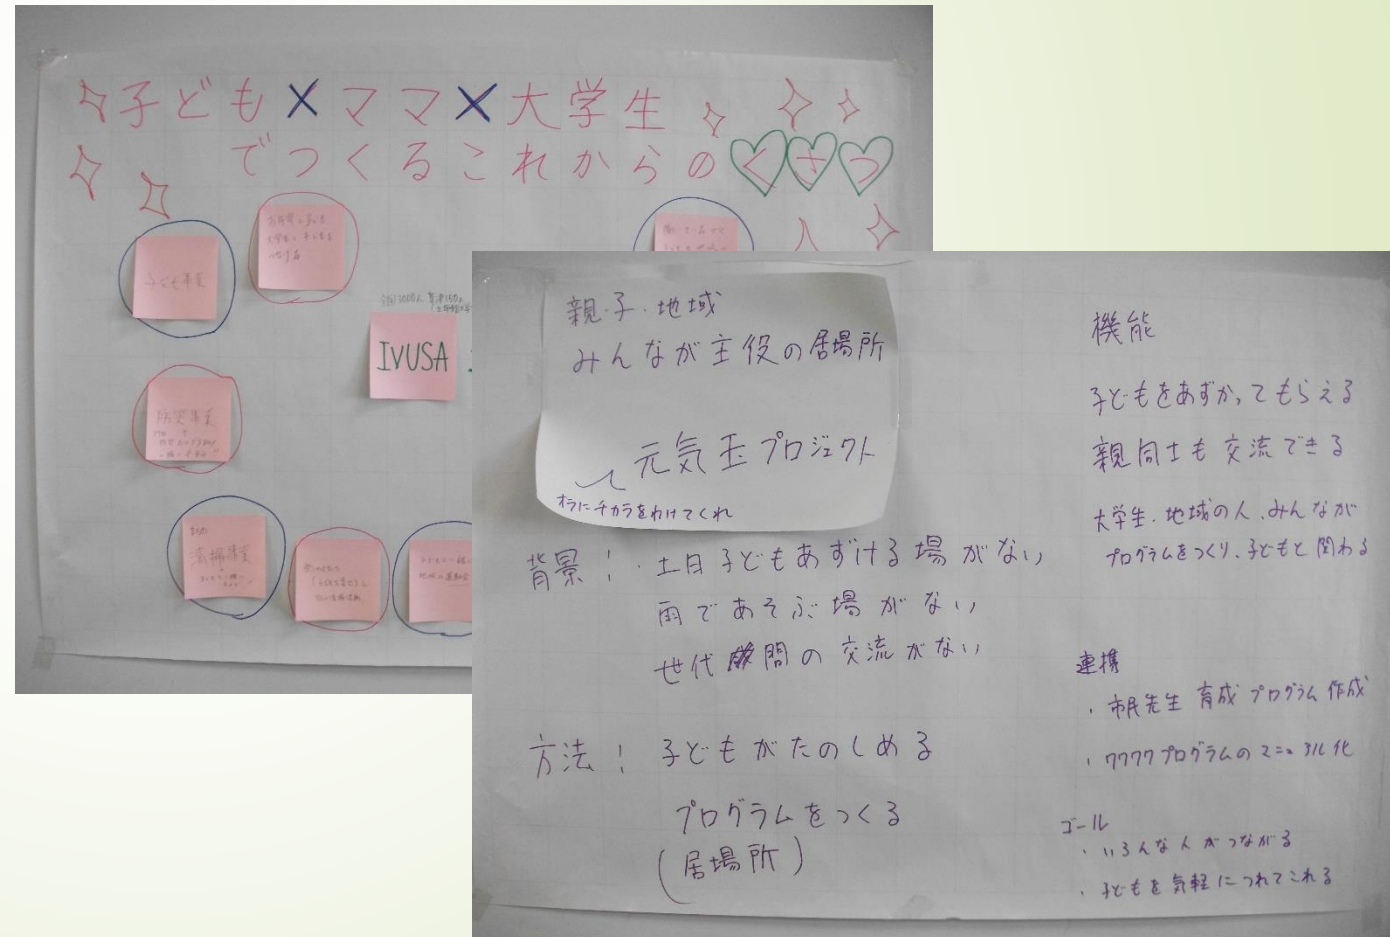 子ども×ママ×大学生
でつくるこれからのくさつ
子ども事業
大学生と子ども
全国3000人
IVUSA
防災事業
清掃事業
親・子・地域
みんなが主役の居場所
元気玉プロジェクト
オラにチカラをわけてくれ
背景！・土日子どもあずける場がない
雨であそぶ場がない
世代間の交流がない
方法！子どもがたのしめる
プログラムをつくる
（居場所）
機能
子どもをあずかってもらえる
親同士も交流できる
大学生・地域の人・みんなが
プログラムをつくり、子どもと関わる
連携
・市民先生 育成プログラム作成
・ワクワクプログラムのマニュアル化
ゴール
・いろんな人がつながる
・子どもを気軽につれてこれる